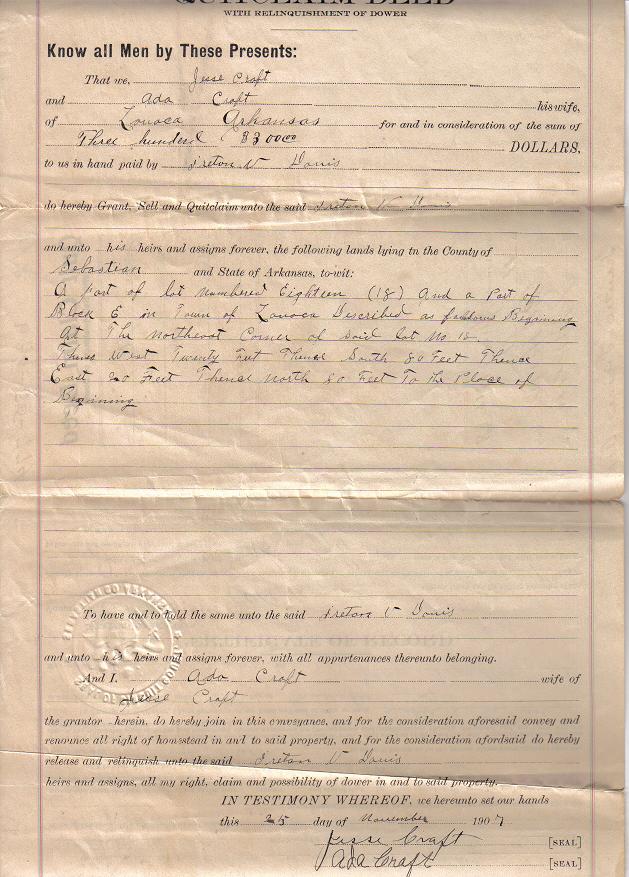 QUITCLAIM DEED
WITH RELINQUISHMENT OF DOWER
Know all Men by These Presents:
That we, Jesse Craft
and Ada Craft his wife,
of Arkansas for and in consideration of the sum of
Three hundred $300.00 DOLLARS,
to us in hand paid by
do hereby Grant, Sell and Quitclaim unto the said
and unto his heirs and assigns forever, the following lands lying in the County of
Sebastian and State of Arkansas, to-wit:
A part of lot numbered Eighteen (18) And a Part of
Block E in Town of Described as follows Beginning
At The Northeast Corner of Said lot No 18.
Thence West Twenty Feet Thence South 80 Feet Thence
East 20 Feet Thence North 80 Feet To the Place of
Beginning
To have and to hold the same unto the said
and unto his heirs and assigns forever, with all appurtenances thereunto belonging.
And I, Ada Craft wife of
Jesse Craft
the grantor herein, do hereby join in this conveyance, and for the consideration aforesaid convey and
renounce all right of homestead in and to said property, and for the consideration afordsaid do hereby
release and relinquish unto the said
heirs and assigns, all my right, claim and possibility of dower in and to said property.
IN TESTIMONY WHEREOF, we hereunto set our hands
this 25 day of November 1907
Jesse Craft [SEAL]
Ada Craft [SEAL]